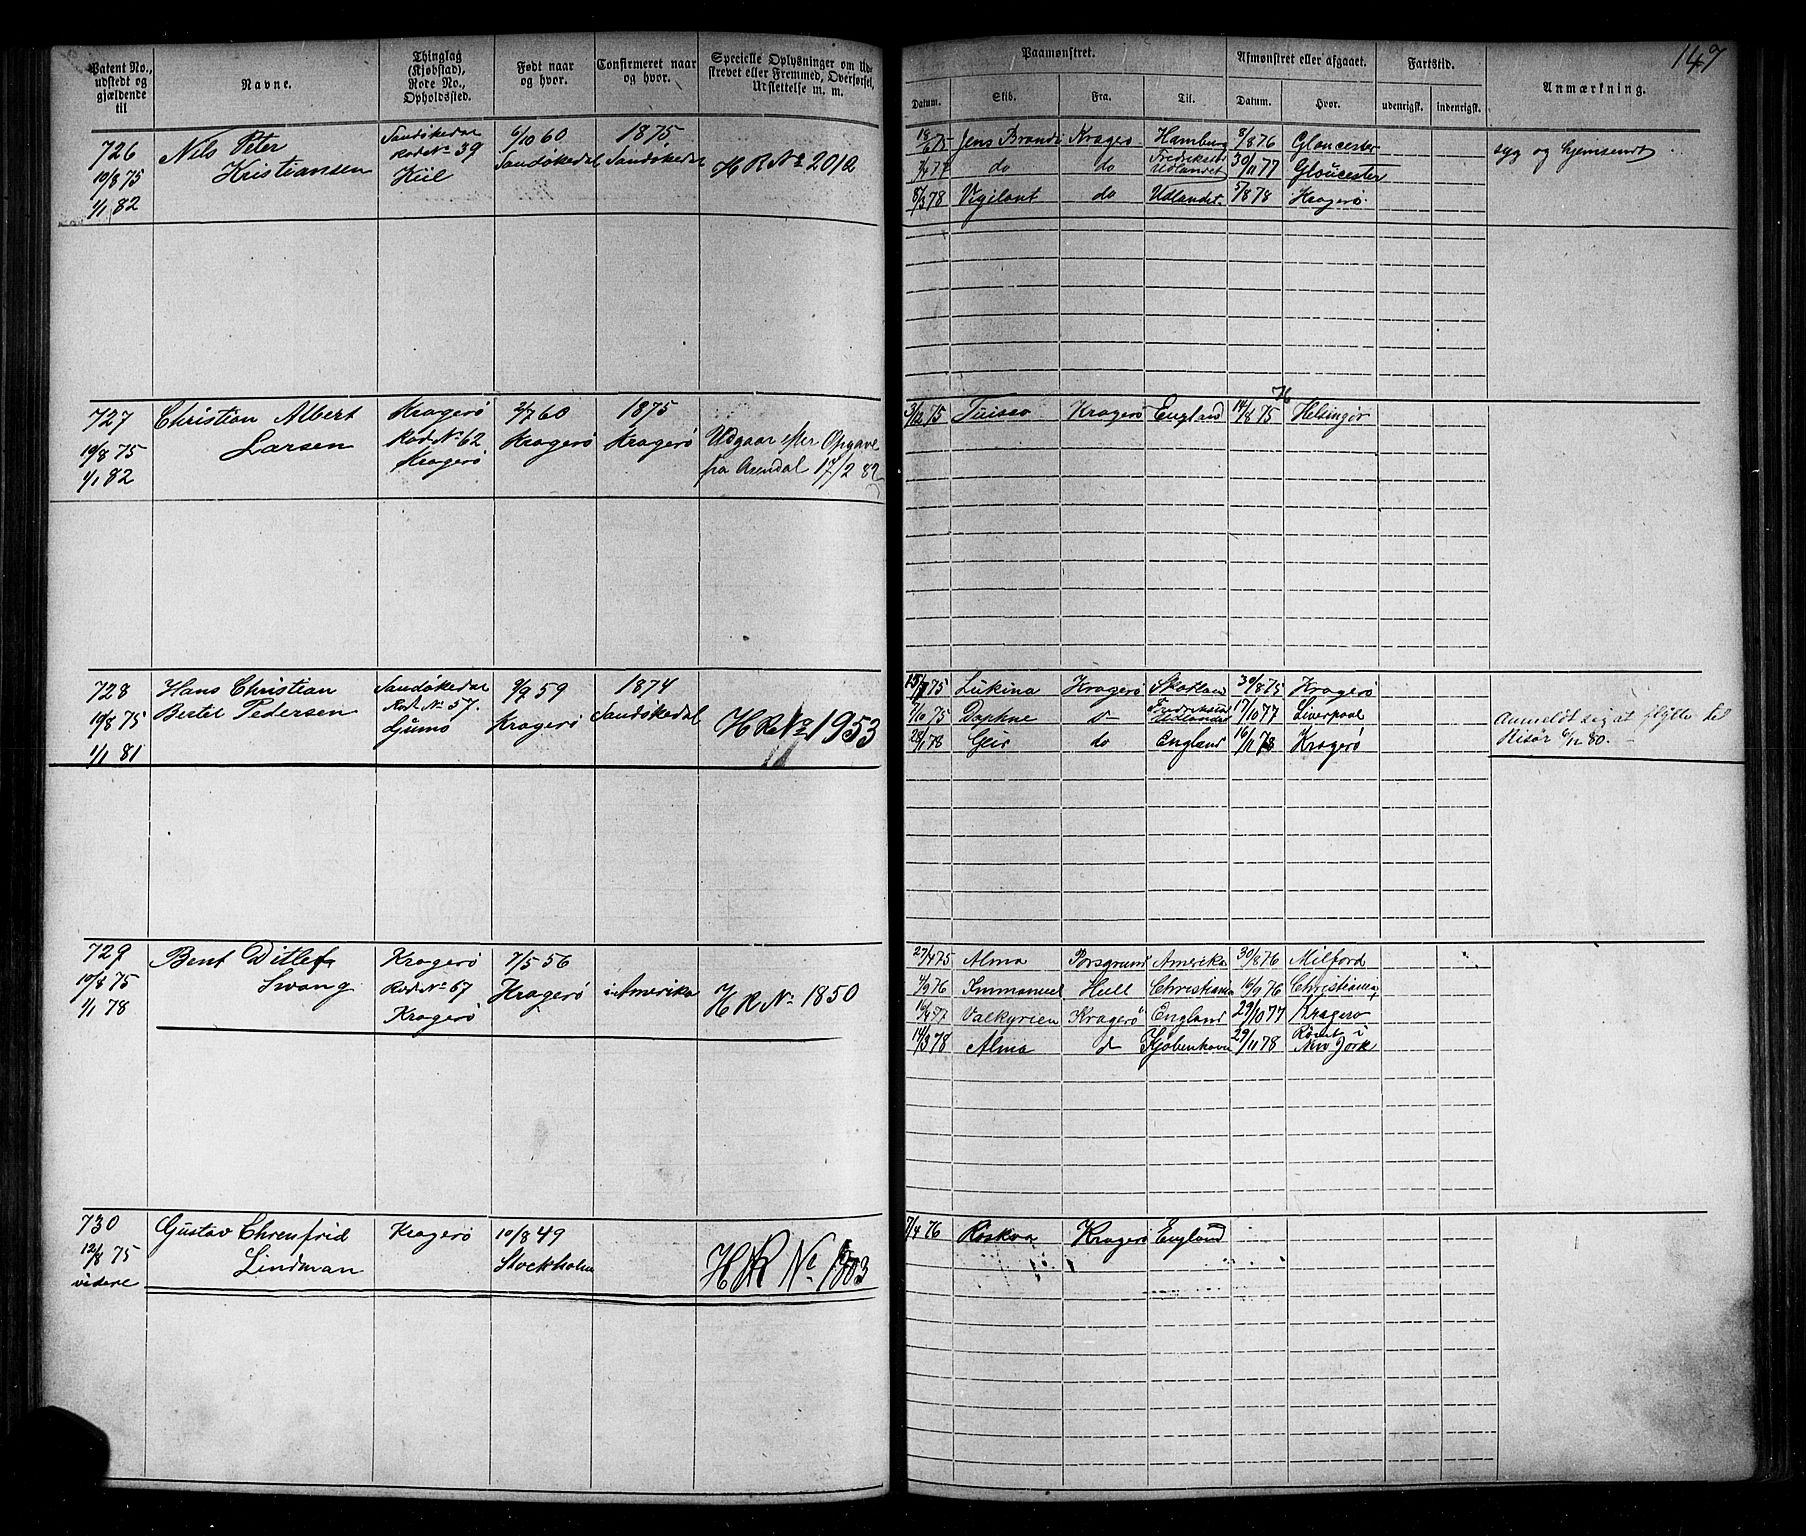 147
Patent No., udstedt og gjældende til
Navne.
Thinglag (Kjøbstad), Rode No., Opholdssted.
Født naar og hvor.
Confirmeret naar og hvor.
Specielle Oplysninger om Udskrevet eller Fremmed, Overførsel, Udslettelse m. m.
Paamønstret.
Datum. Skib. Fra. Til.
Afmønstret eller afgaaet.
Datum. Hvor.
Fartstid.
udenrigsk. indenrigsk.
Anmærkning.
726 Nils Peter Sandøkedal 6/10 60 1875
Kristiansen Rod. No 39 Sandøkedal Sandøkedal H R No 2012
10/8 75 Kiil
1/1 82
18/6 75 Jens Brandi Kragerø Hamburg 8/8 76 Gloucester syg og hjemsendt
7/4 77 do do Fredrikst. Udlandet 30/11 77 Gloucester
5/3 78 Vigilant do Udlandet 5/8 78 Kragerø
727 Christian Albert Kragerø 2/7 60 1875
Larsen Rod. No 62 Kragerø Kragerø Udgaar efter Opgave
10/8 75 Kragerø fra Arendal 17/2 82
1/1 82
3/12 75 Tuisco Kragerø England 14/8 75 76 Helsingør
728 Hans Christian Sandøkedal 9/9 59 1874
10/8 75 Bertel Pedersen Rod. No 57. Kragerø Sandøkedal H R No 1953
1/1 81
15/7 75 Lukina Kragerø Skotland 30/8 75 Kragerø
7/10 75 Daphne Udlandet 17/10 77 Liverpool Anmeldt sig at flytte til
28/1 78 Geir do England 16/11 78 Kragerø Risør 6/12 80.
729 Bent Ditlef Kragerø 7/5 56
10/8 75 Swang Rod. No 67 Kragerø i Amerika H R No 1850
1/1 78 Kragerø
27/4 75 Alma Porsgrund Amerika 30/8 76 Milford
4/9 76 Immanuel Hull Christiania 16/9 76 Christiania
16/4 77 Valkyrien Kragerø England 29/10 77 Kragerø
14/3 78 Alma d Kjøbenhavn 29/11 78 Rømt i New York
730 Gustav Ehrenfrid Kragerø 10/8 49
12/8 75 Lindman Stockholm H R No
videre
7/4 76 Røskva Kragerø England